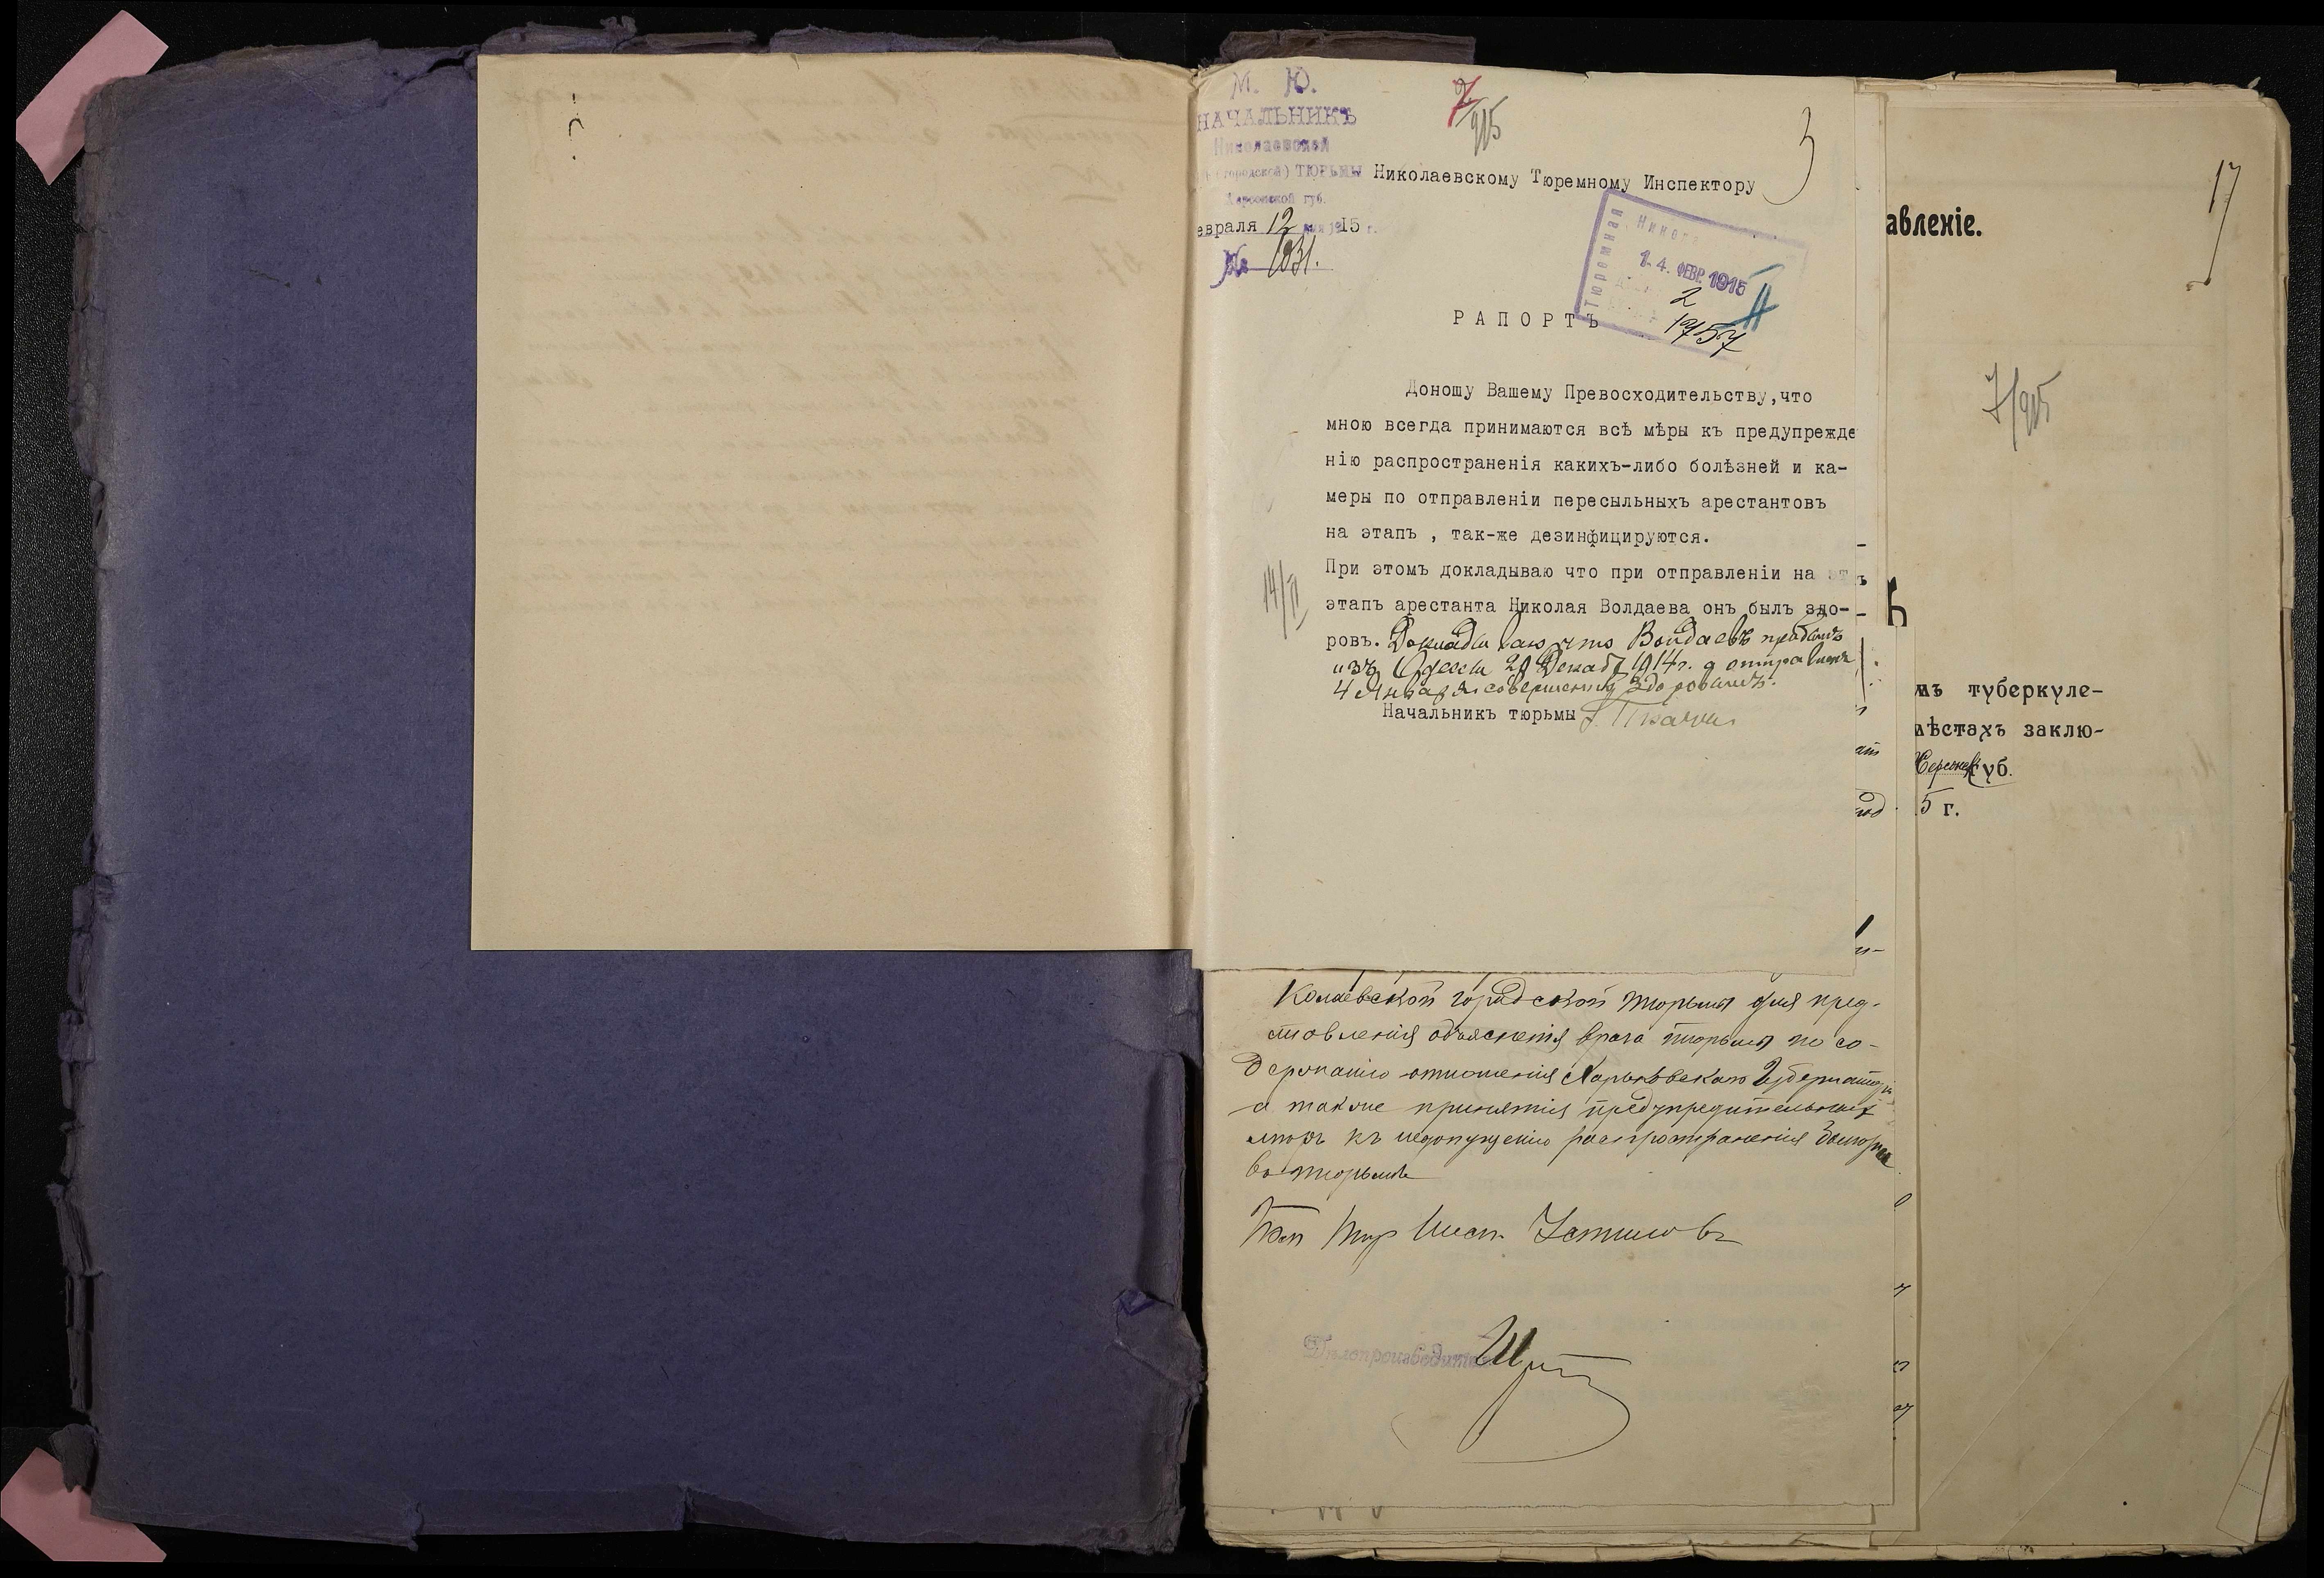 М. Ю.
НАЧАЛЬНИКЪ
Николаевской
(городской) ТЮРЬМЫ
Херсонской губ.
евраля 12 дня 1915 г.
№ 1831.
7/915
3
Николаевскому Тюремному Инспектору
Тюремная
14 ФЕВР 1915
2
1757
РАПОРТЪ
Доношу Вашему Превосходительству,что
мною всегда принимаются всѣ мѣры къ предупрежде
нію распространенія какихъ-либо болѣзней и ка-
меры по отправленіи пересыльныхъ арестантовъ
на этапъ , так-же дезинфицируются.
При этомъ докладываю что при отправленіи на
этапъ арестанта Николая Волдаева онъ былъ здо-
ровъ. Докладываю что Волдаевъ прибылъ
изъ Одессы 29 Декаб 1914г. а отправленъ
4 Января совершенно здоровымъ.
Начальникъ тюрьмы
14/II
колаевской городской тюрьмы для пред-
ставленія объясненія врача тюрьмы по со-
держанію отношенія Харьковскаго Губернатора
а также принятія предупредительныхъ
мѣръ къ недопущенію распространенія
въ тюрьмѣ
Тюр Инсп.
Дѣлопроизводитель
авленіе.
17
7/915
мъ туберкуле-
мѣстахъ заклю-
Херсонск губ.
5 г.